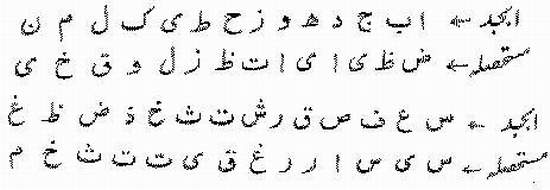 ابجد ← ا ب ج د ھ و ز ح ط ی ک ل م ن
مستحصلہ ← ض ظ ی ا ی ا ت ظ ز ل و ق خ ی
ابجد ← س ع ف ص ق ر ش ت ث خ ذ ض ظ غ
مستحصلہ ← س ی س ا ر ر غ ق ی ت ت ث خ م